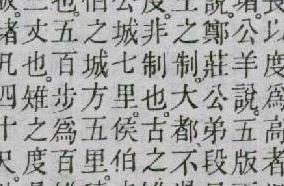 以度為高者
堵公羊說五版
說鄭莊公弟段
王之制大都不
度非制也古之
公城七里侯伯
伯之城方五里
也五百步為百
三丈也雉之度
者凡四十尺